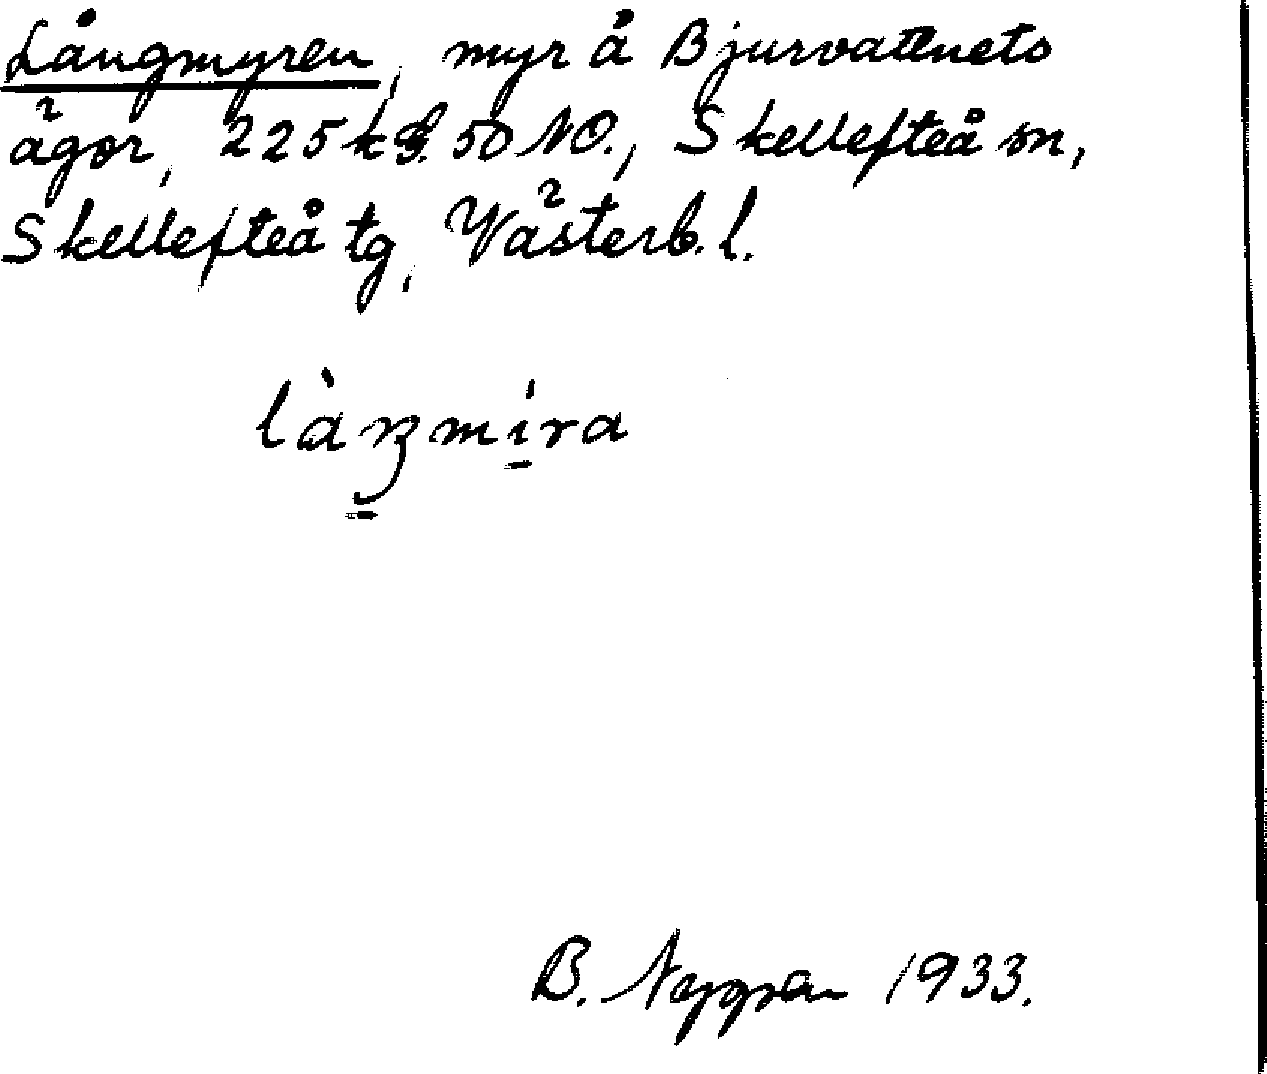 Långmyren, myr å Bjurvattnets
ägor, 225 kg. 50 NO., Skellefteå sn,
Skellefteå tg, Västerb. l.
B. Nygren 1933.